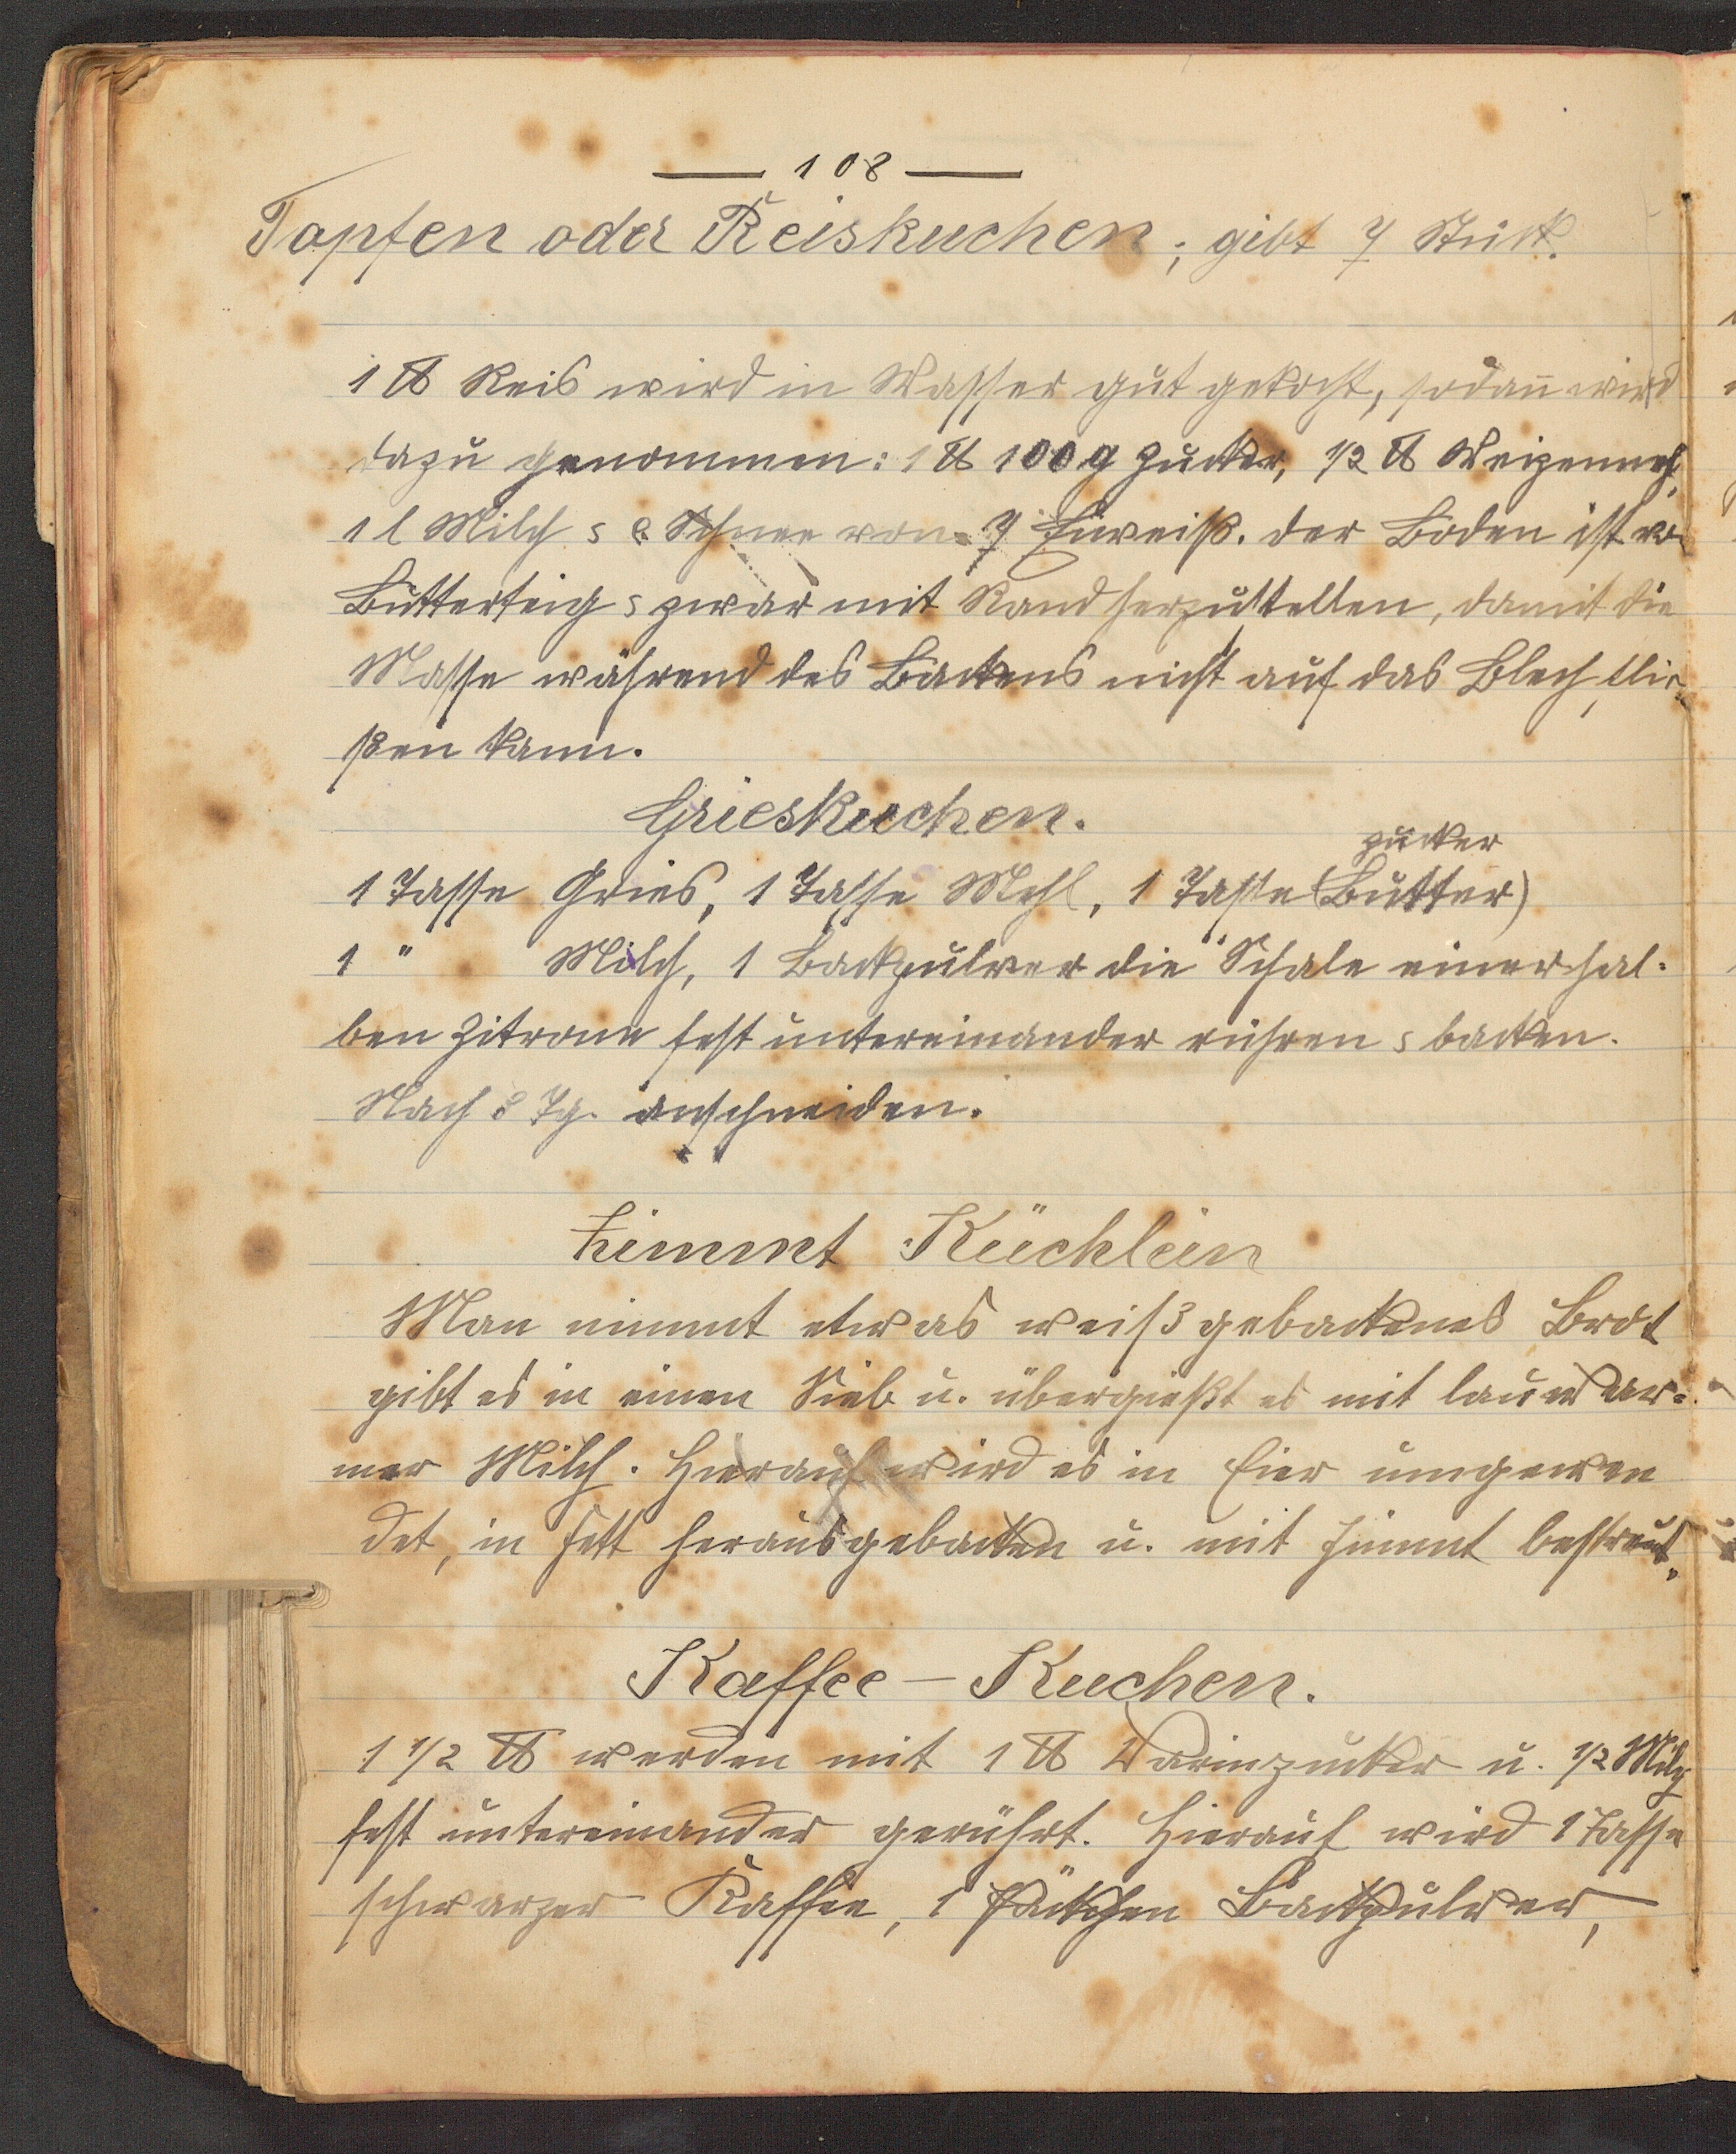 — 108 —
Topfen oder Reiskuchen; gibt 7 Stück.
1 ℔ Reis wird in Wasser gut gekocht, sodann wird
dazu genommen: 1 ℔ 100 g Zucker, 1/2 ℔ Weizenmehl,
1 l Milch s e. Schnee von 7 Eiweiß. der Boden ist von
Butterteig s zwar mit Rand herzustellen, damit die
Masse während des Backens nicht auf das Blech flie-
ßen kann.
Grieskuchen.
Zucker
1 Tasse Gries, 1 Tasse Mehl, 1 Tasse (Butter)
1 " Milch, 1 Backpulver die Schale einer hal-
ben Zitrone fest untereinander rühren s backen.
Nach 8 Tg. anschneiden.
Zimmt Küchlein
Man nimmt etwas weißgebackenes Brot
gibt es in einen Sieb u. übergießt es mit lauwar-
mer Milch. Hierauf wird es in Eier umgewen
det, in Fett herausgebacken u. mit Zimmt bestreut.
Kaffee – Kuchen.
1 1/2 ℔ werden mit 1 ℔ Farinzucker u. 1/2 Milch
fest untereinander gerührt. Hierauf wird 1 Tasse
schwarzer Kaffee, 1 Päckchen Backpulver,